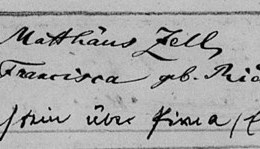 Matthäus Zell,
Francisca geb.
über Firma